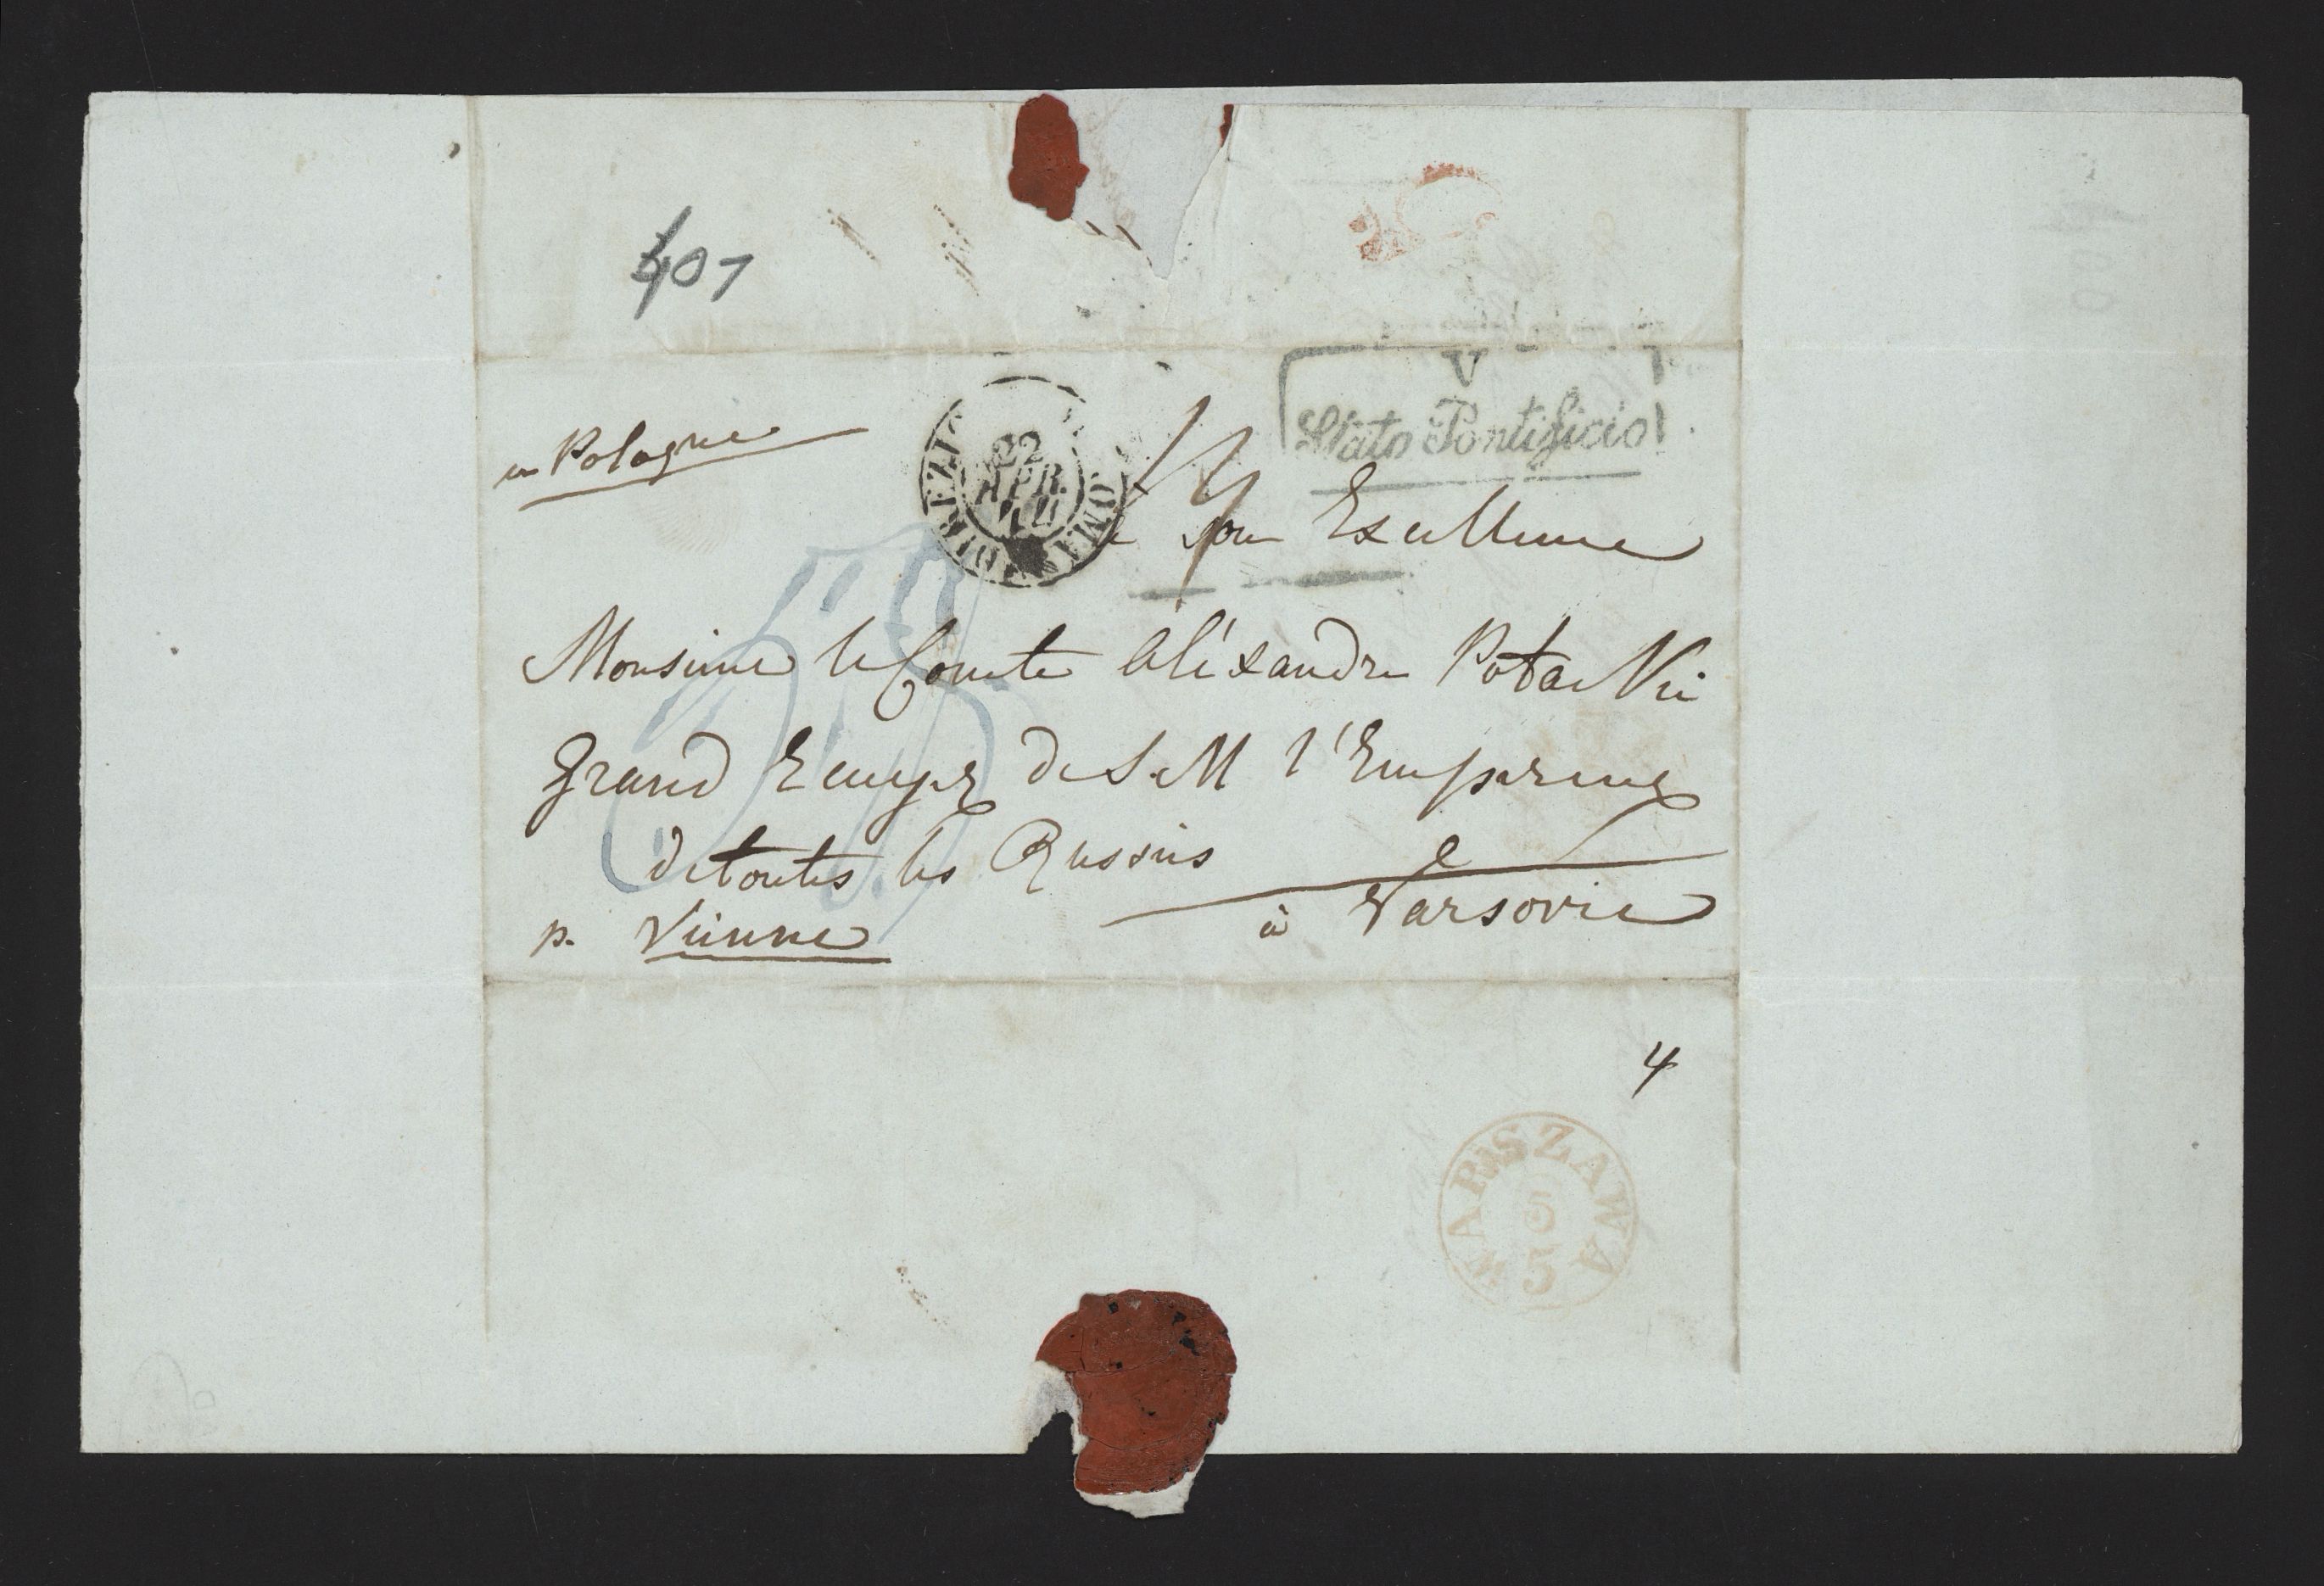 407
V
Stato Pontificio
en Pologne
22
APR.
DIREZIO
ROMA
à Son Excellence
Monsieur le Comte Aléxandre Potocki
Grand Ecuyer de S. M l'Empereur
de toutes les Russies
à Varsovie
p. Vienne
4
WARSZAWA
5
5